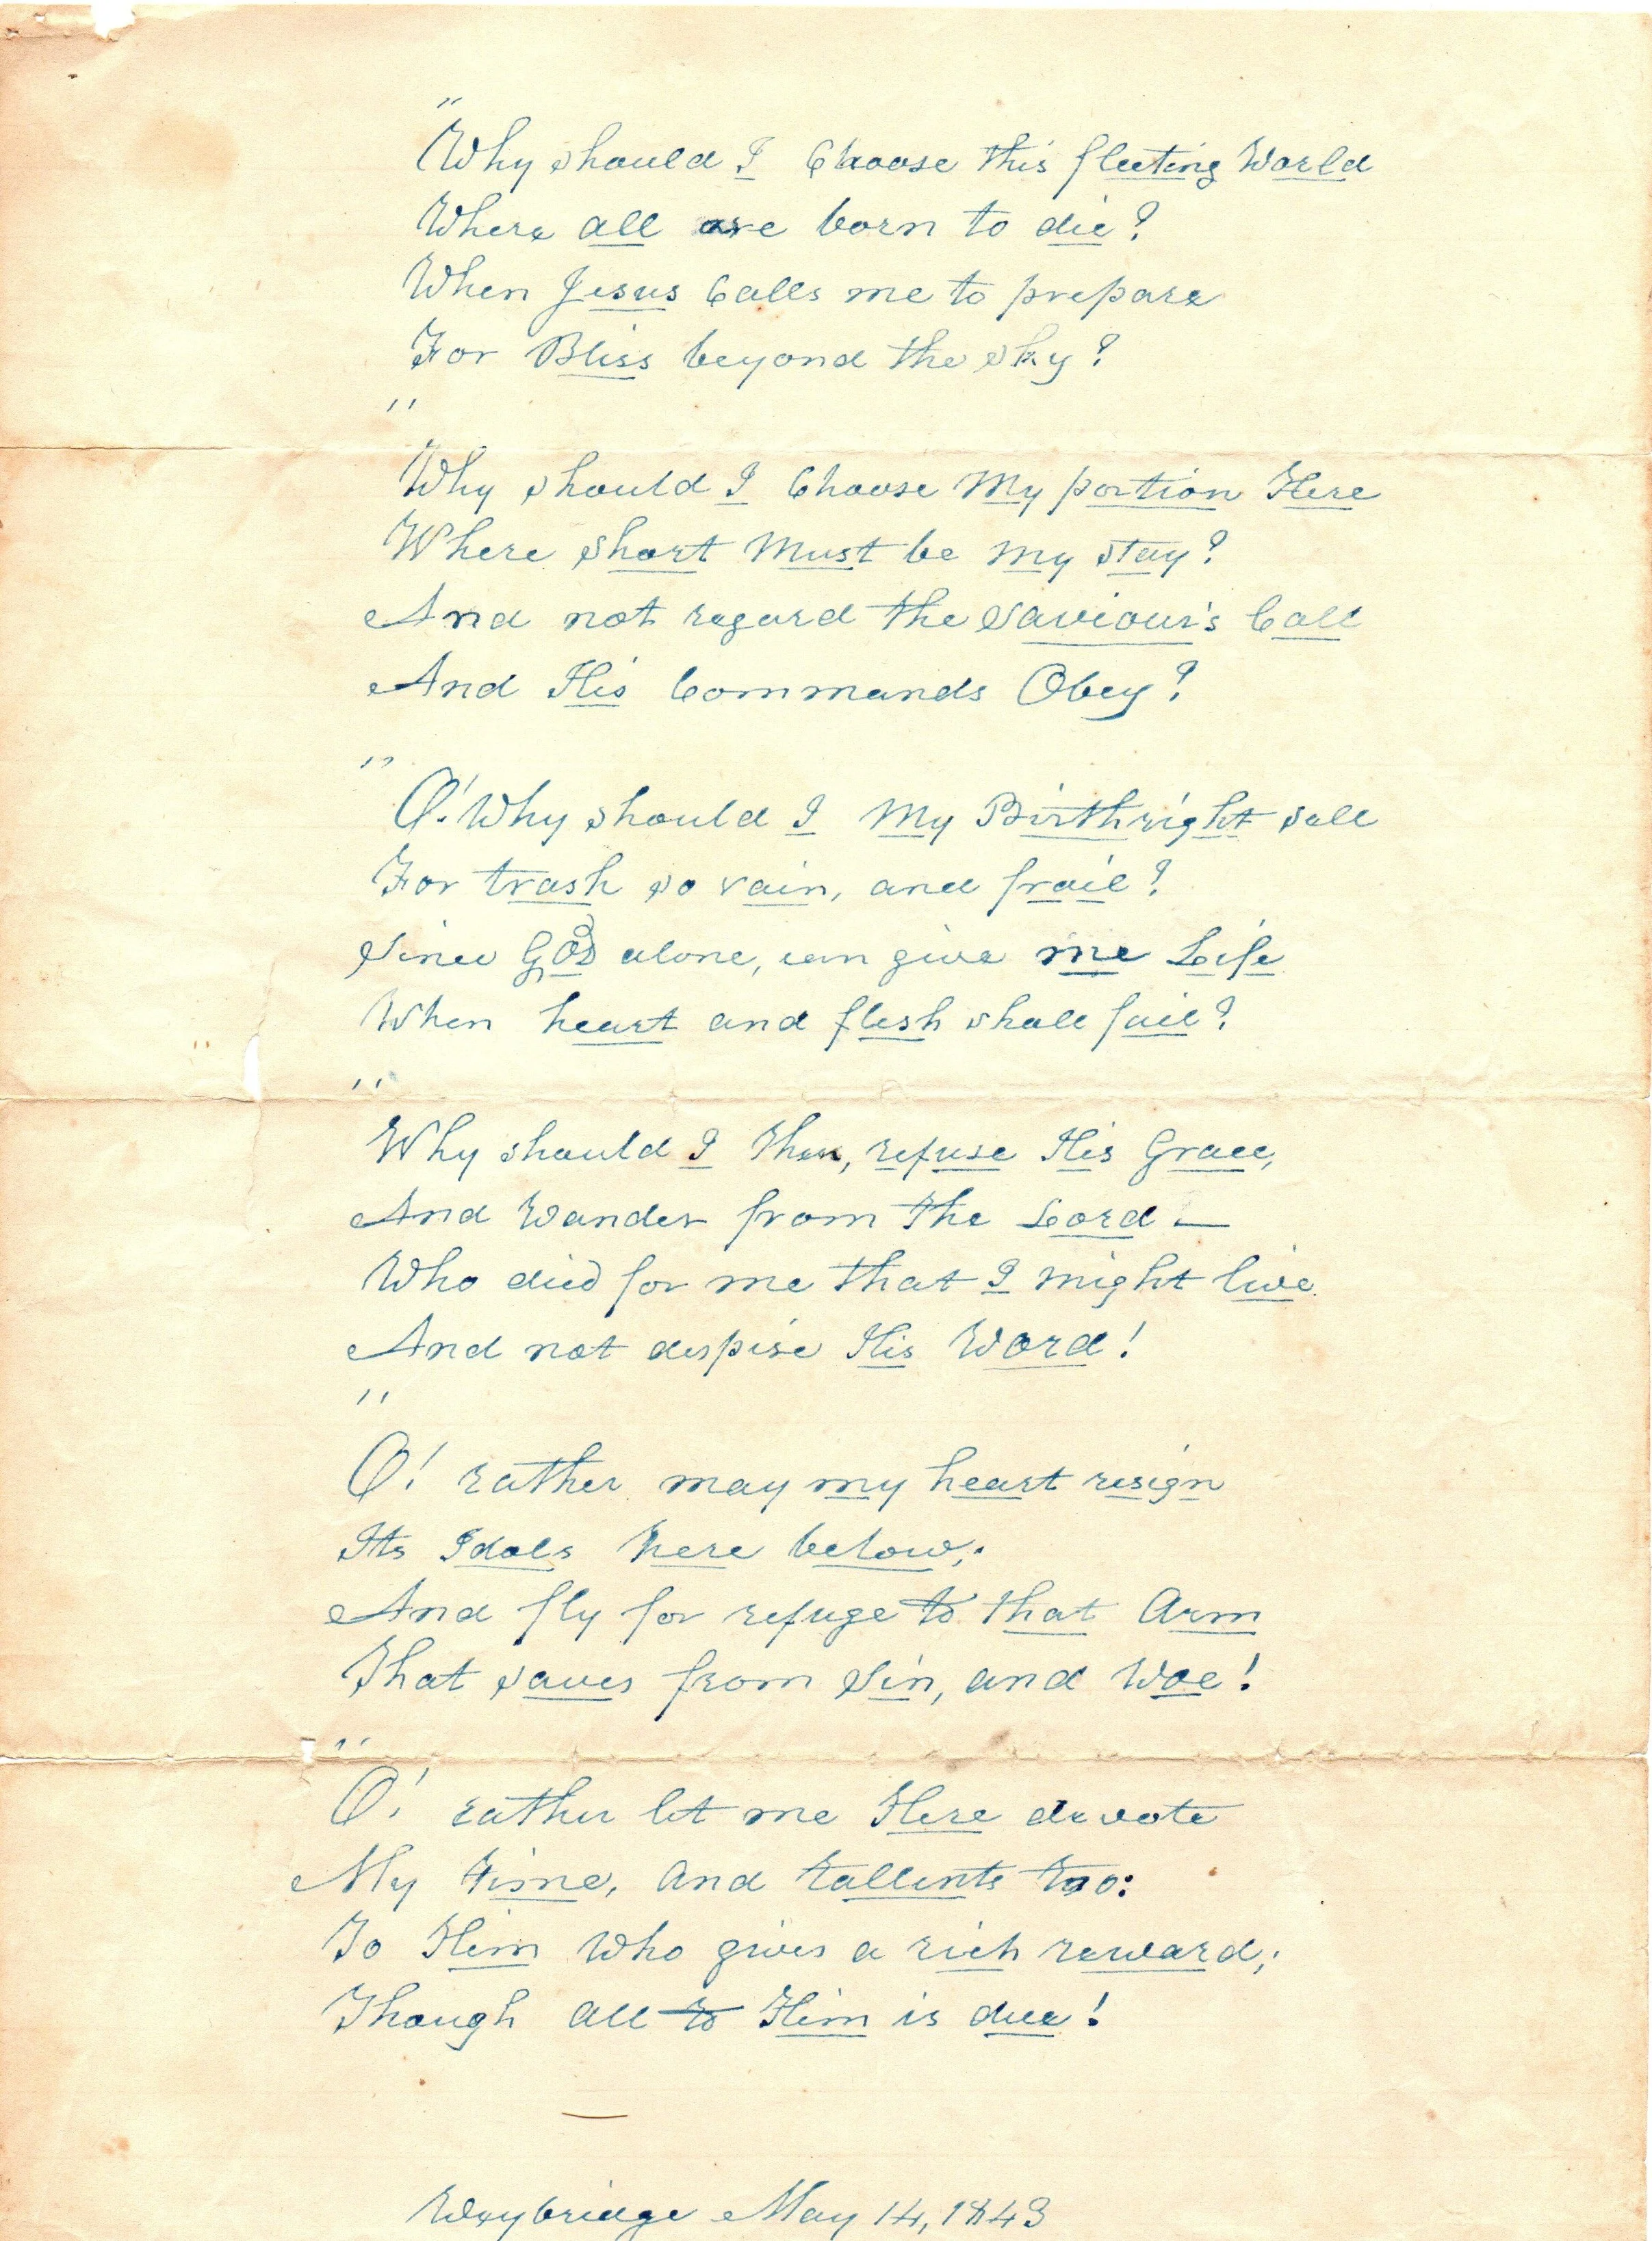 "
Why should I Choose this fleeting World
Where all are born to die?
When Jesus Calls me to prepare
For Bliss beyond the sky?
"
Why should I Choose My portion Here
Where short Must be my stay?
And not regard the Saviour's Call
And His Commands Obey?
"
O! Why should I My Birthright sell
For trash so vain, and frail?
Since GOD alone, can give me Life
When heart and flesh shall fail?
"
Why should I then, refuse His Grace,
And Wander from the Lord —
Who died for me that I might live.
And not despise His Word!
"
O! rather may my heart resign
Its Idols here below;
And fly for refuge to that Arm
That saves from Sin, and Woe!
"
O! rather let me Here devote
My time, and tallents too:
To Him Who gives a rich reward;
Though all to Him is due!
Weybridge May 14, 1843